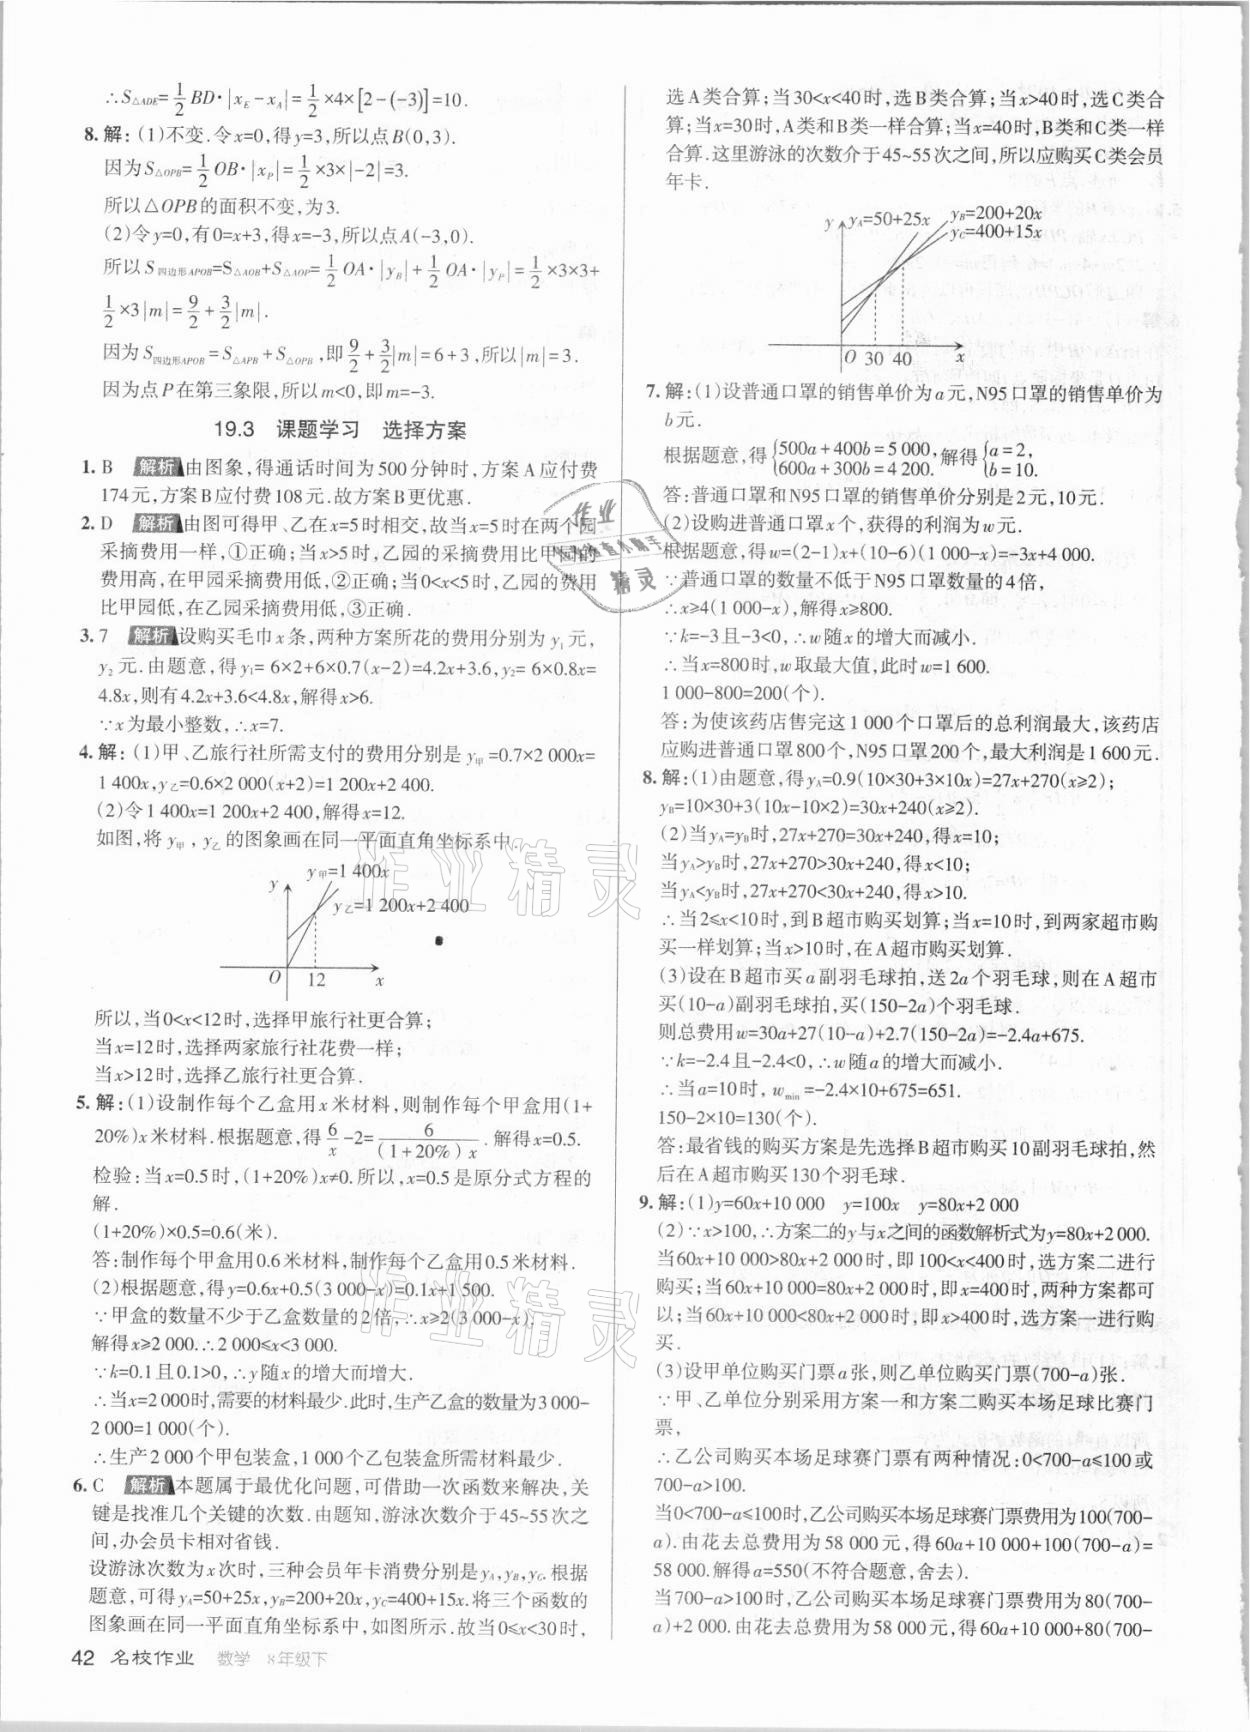 ∴S△ADE=1/2 BD·|xE-xA|=1/2×4×[2-(-3)]=10.
8. 解：(1)不变.令x=0,得y=3,所以点B(0,3).
因为S△OPB=1/2 OB·|xP|=1/2×3×|-2|=3.
所以△OPB的面积不变,为3.
(2)令y=0,有0=x+3,得x=-3,所以点A(-3,0).
所以S四边形APOB=S△AOB+S△AOP=1/2 OA·|yB|+1/2 OA·|yP|=1/2×3×3+
1/2×3|m|=9/2+3/2|m|.
因为S四边形APOB=S△APB+S△OPB,即9/2+3/2|m|=6+3,所以|m|=3.
因为点P在第三象限,所以m<0,即m=-3.
19.3 课题学习 选择方案
1. B 解析 由图象，得通话时间为500分钟时，方案A应付费
174元,方案B应付费108元.故方案B更优惠.
2. D 解析 由图可得甲、乙在x=5时相交,故当x=5时在两个园
采摘费用一样,①正确;当x>5时,乙园的采摘费用比甲园的
费用高,在甲园采摘费用低,②正确;当0<x<5时,乙园的费用
比甲园低,在乙园采摘费用低,③正确.
3. 7 解析 设购买毛巾x条，两种方案所花的费用分别为y1元,
y2元.由题意,得y1=6×2+6×0.7(x-2)=4.2x+3.6,y2=6×0.8x=
4.8x,则有4.2x+3.6<4.8x,解得x>6.
∵x为最小整数,∴x=7.
4. 解：(1)甲、乙旅行社所需支付的费用分别是y甲=0.7×2 000x=
1 400x,y乙=0.6×2 000(x+2)=1 200x+2 400.
(2)令1 400x=1 200x+2 400,解得x=12.
如图,将y甲,y乙的图象画在同一平面直角坐标系中.
y y甲=1 400x
y乙=1 200x+2 400
O 12 x
所以,当0<x<12时,选择甲旅行社更合算;
当x=12时,选择两家旅行社花费一样;
当x>12时,选择乙旅行社更合算.
5. 解：(1)设制作每个乙盒用x米材料,则制作每个甲盒用(1+
20%)x米材料.根据题意,得6/x-2=6/(1+20%)x.解得x=0.5.
检验:当x=0.5时,(1+20%)x≠0.所以,x=0.5是原分式方程的
解.
(1+20%)×0.5=0.6(米).
答:制作每个甲盒用0.6米材料,制作每个乙盒用0.5米材料.
(2)根据题意,得y=0.6x+0.5(3 000-x)=0.1x+1 500.
∵甲盒的数量不少于乙盒数量的2倍,∴x≥2(3 000-x),
解得x≥2 000.∴2 000≤x<3 000.
∵k=0.1且0.1>0,∴y随x的增大而增大.
∴当x=2 000时,需要的材料最少.此时,生产乙盒的数量为3 000-
2 000=1 000(个).
∴生产2 000个甲包装盒,1 000个乙包装盒所需材料最少.
6. C 解析 本题属于最优化问题,可借助一次函数来解决,关
键是找准几个关键的次数.由题知,游泳次数介于45~55次之
间,办会员卡相对省钱.
设游泳次数为x次时,三种会员年卡消费分别是yA,yB,yC.根据
题意,可得yA=50+25x,yB=200+20x,yC=400+15x.将三个函数的
图象画在同一平面直角坐标系中,如图所示.故当0≤x<30时,
42 名校作业 数学 8年级下
选A类合算;当30<x<40时,选B类合算;当x>40时,选C类合
算;当x=30时,A类和B类一样合算;当x=40时,B类和C类一样
合算.这里游泳的次数介于45~55次之间,所以应购买C类会员
年卡.
y yA=50+25x yB=200+20x
yC=400+15x
O 30 40 x
7. 解：(1)设普通口罩的销售单价为a元,N95口罩的销售单价为
b元.
根据题意,得{500a+400b=5 000, 600a+300b=4 200.解得{a=2, b=10.
答:普通口罩和N95口罩的销售单价分别是2元,10元.
(2)设购进普通口罩x个,获得的利润为w元.
根据题意,得w=(2-1)x+(10-6)(1 000-x)=-3x+4 000.
∵普通口罩的数量不低于N95口罩数量的4倍,
∴x≥4(1 000-x),解得x≥800.
∵k=-3且-3<0,∴w随x的增大而减小.
∴当x=800时,w取最大值,此时w=1 600.
1 000-800=200(个).
答:为使该药店售完这1 000个口罩后的总利润最大,该药店
应购进普通口罩800个,N95口罩200个,最大利润是1 600元.
8. 解：(1)由题意,得yA=0.9(10×30+3×10x)=27x+270(x≥2);
yB=10×30+3(10x-10×2)=30x+240(x≥2).
(2)当yA=yB时,27x+270=30x+240,得x=10;
当yA>yB时,27x+270>30x+240,得x<10;
当yA<yB时,27x+270<30x+240,得x>10.
∴当2≤x<10时,到B超市购买划算;当x=10时,到两家超市购
买一样划算;当x>10时,在A超市购买划算.
(3)设在B超市买a副羽毛球拍,送2a个羽毛球,则在A超市
买(10-a)副羽毛球拍,买(150-2a)个羽毛球.
则总费用w=30a+27(10-a)+2.7(150-2a)=-2.4a+675.
∵k=-2.4且-2.4<0,∴w随a的增大而减小.
∴当a=10时,wmin=-2.4×10+675=651.
150-2×10=130(个).
答:最省钱的购买方案是先选择B超市购买10副羽毛球拍,然
后在A超市购买130个羽毛球.
9. 解：(1)y=60x+10 000 y=100x y=80x+2 000
(2)∵x>100,∴方案二的y与x之间的函数解析式为y=80x+2 000.
当60x+10 000>80x+2 000时,即100<x<400时,选方案二进行
购买;当60x+10 000=80x+2 000时,即x=400时,两种方案都可
以;当60x+10 000<80x+2 000时,即x>400时,选方案一进行购
买.
(3)设甲单位购买门票a张,则乙单位购买门票(700-a)张.
∵甲、乙单位分别采用方案一和方案二购买本场足球比赛门
票,
∴乙公司购买本场足球赛门票有两种情况:0<700-a≤100或
700-a>100.
当0<700-a≤100时,乙公司购买本场足球赛门票费用为100(700-
a).由花去总费用为58 000元,得60a+10 000+100(700-a)=
58 000.解得a=550(不符合题意,舍去).
当700-a>100时,乙公司购买本场足球赛门票费用为80(700-
a)+2 000.由花去总费用为58 000元,得60a+10 000+80(700-
作业
精灵
作业精灵
作业精灵